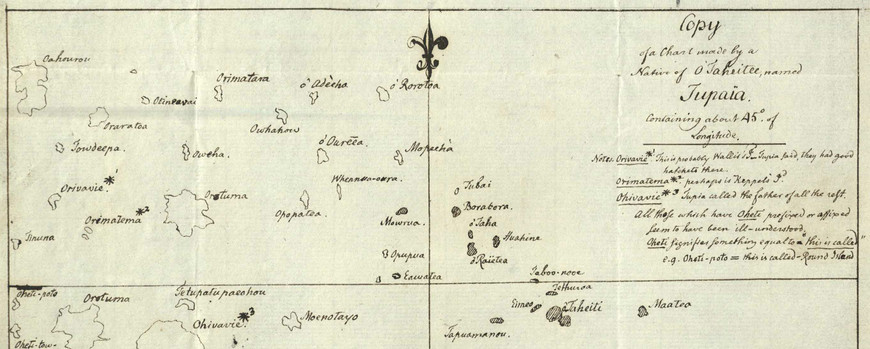 Copy
of a Chart made by a
Native of O'Taheitee, named
Tupaia.
Containing about 45°. of
Longitude.
Notes. Orivavie*¹ This is probably Wallis's I.ᵈ Tupia said, they had good
hatchets there.
Orimatema*², perhaps is Keppels I.ᵈ
Ohivavie*³ Tupia called the father of all the rest.
All those which have Oheti prefixed or affixed
seem to have been ill-understood,
Oheti signifies something equal to "this is called"
e.g. Oheti-poto = this is called-Round Island
Oahourou
Orimatara
ó Adèeha
ó Rorotoa
Oraratea
Owhahow
Towdeepa.
Oweha.
ó Ourèea.
Mopeehà
Whennua-oura.
Orivavie*
Orotuma
Opopatea.
Tubai
Orimatema*²
Borabora.
Mowrua.
ó Taha
Huahine
Tinuna
Opupua
ò Raietea
Eawatea
Taboo-nooe
Oheti-poto
Orotuma
Tetupatupaeahou
Tethuroa
Ohivavie*³
Moenotayo
Eimeo
óTaheiti
Maatea
Tapuamanou.
Oheti-tow-